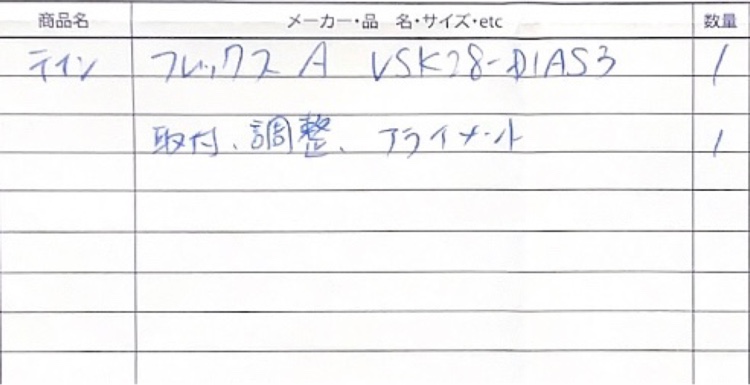 商品名 メーカー・品 名・サイズ・etc 数量
テイン フレックス A VSK28-D1AS3 1
取付、調整、アライメント 1